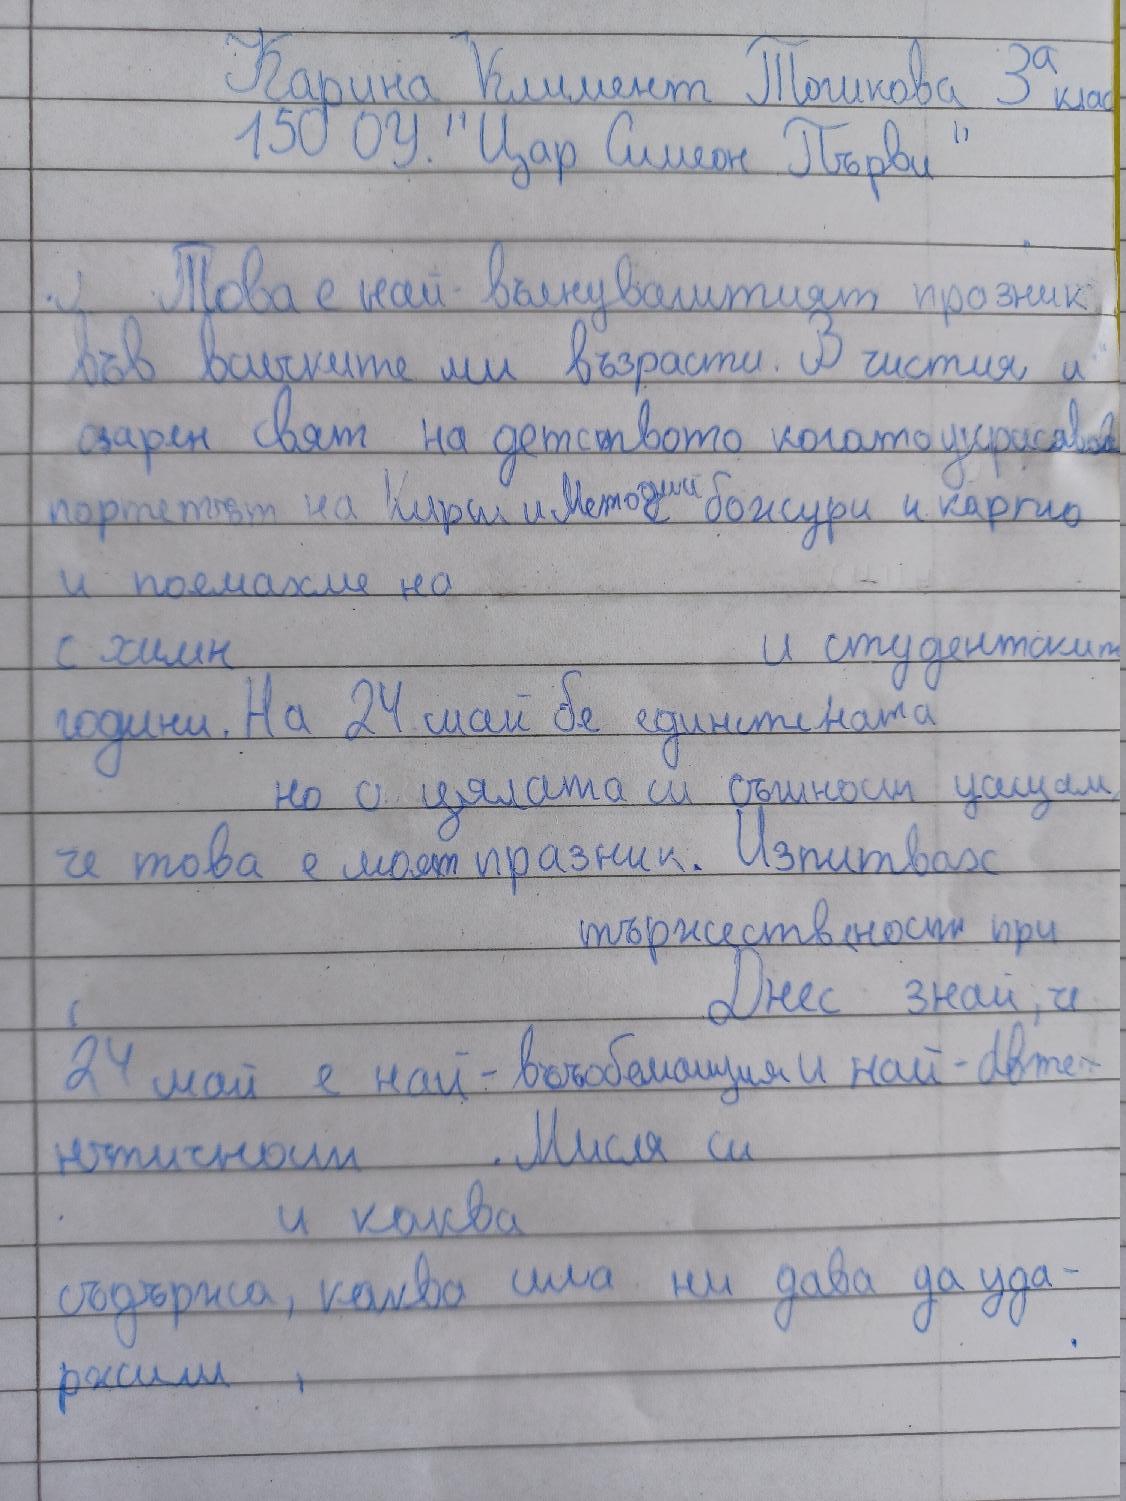 Карина Климент Тошкова 3а клас
150 ОУ. "Цар Симеон Първи"
Това е най- празник
във всичките ми възрасти. В чистия и
озарен свят на детството когато
портетът на Кирил и Методий божури и каргио
и поемахме на
с химн и студентскит
години. На 24 май бе
но с цялата си същност усещам,
че това е моят празник. Изпитвах
тържественост при
Днес знай, че
24 май е най- и най-авте-
нтичност . Мисля си
и каква
съдържа, каква сила ни дава да уда-
ржим ,